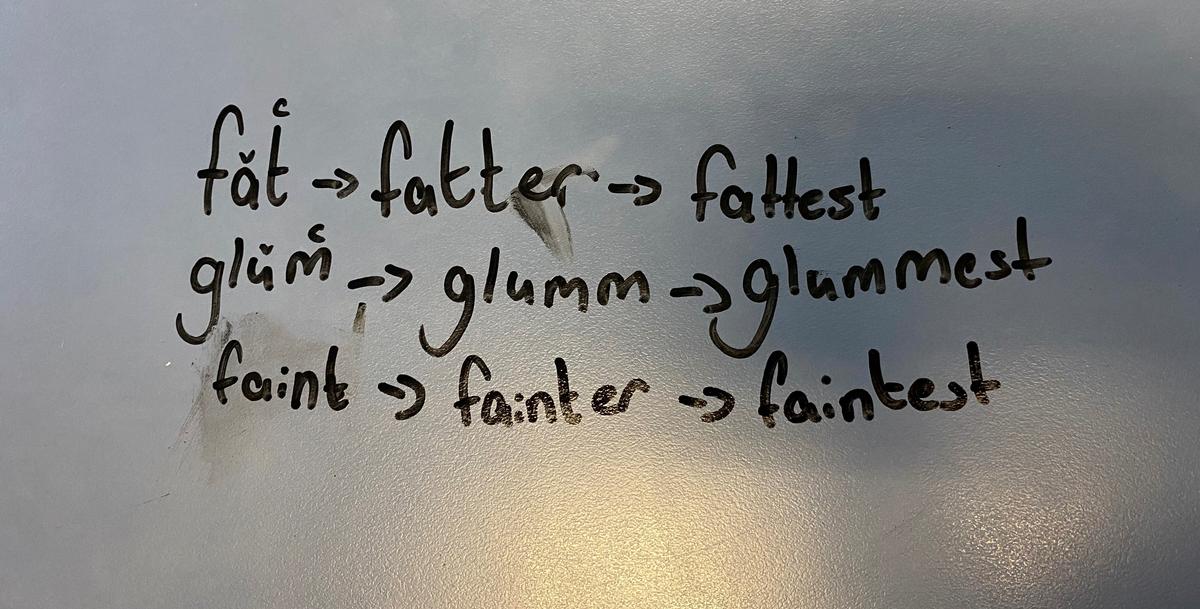 făt̊ → fatter → fattest
glŭm̊ → glumm → glummest
faint → fainter → faintest